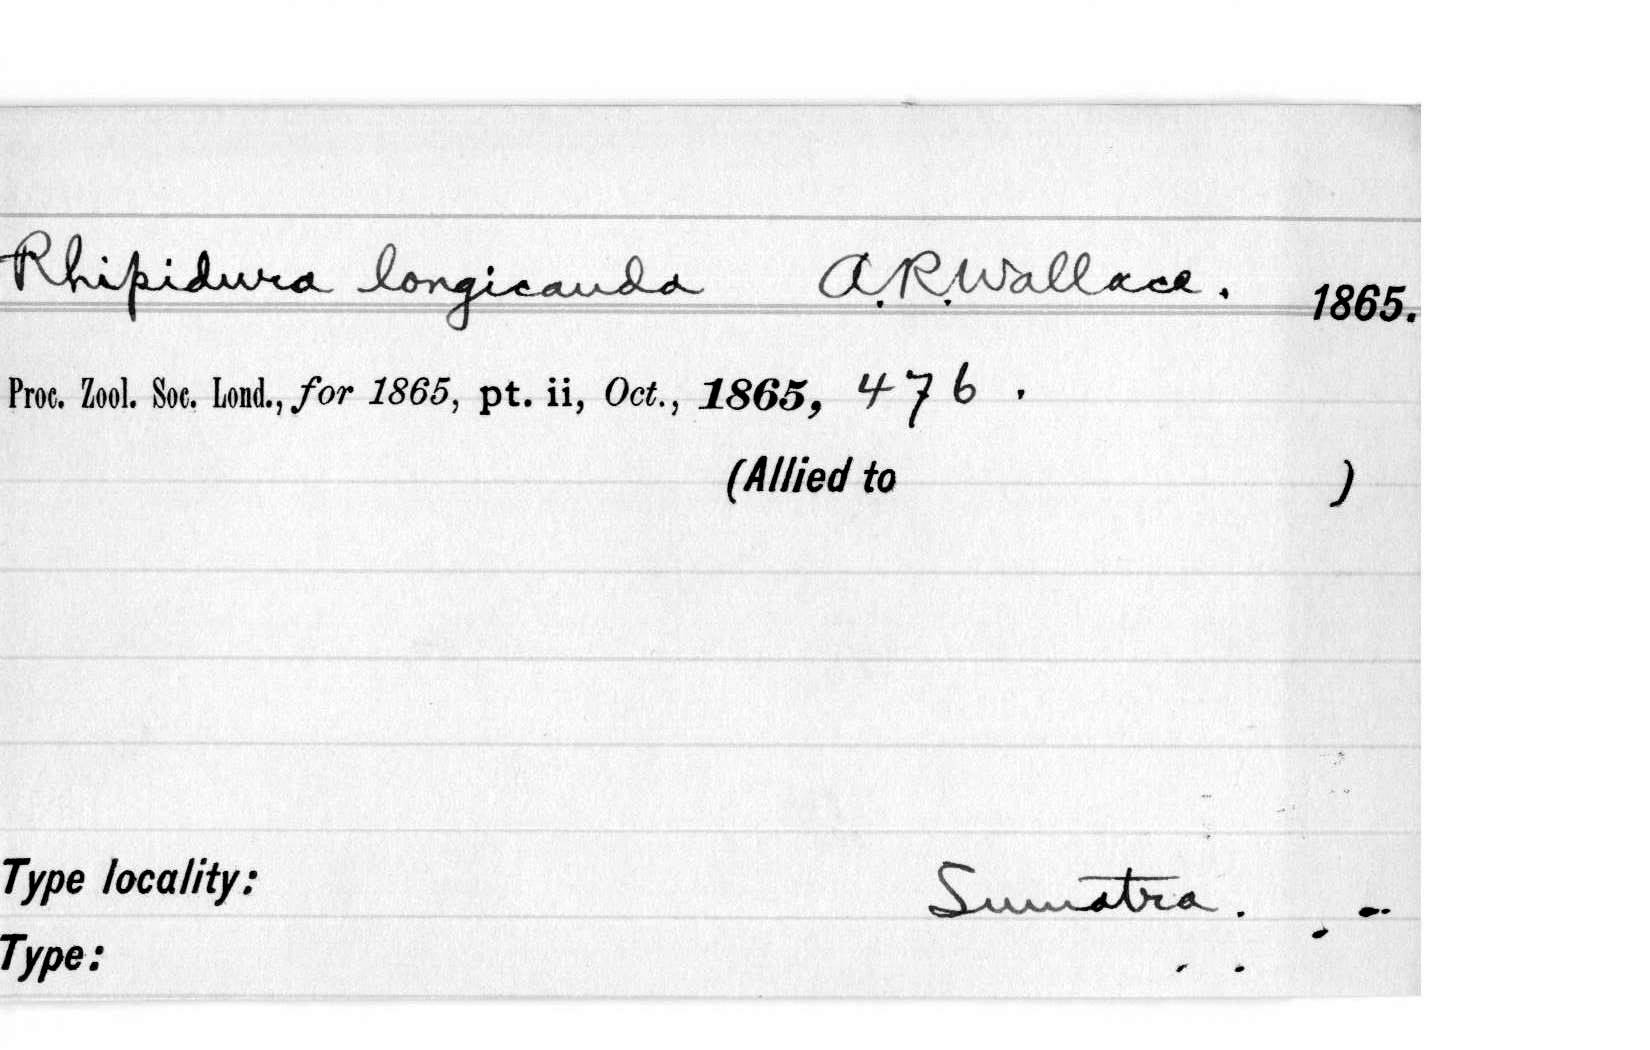 Rhipidura longicauda A.R.Wallace. 1865.
Proc. Zool. Soc. Lond., for 1865, pt. ii, Oct., 1865, 476.
(Allied to )
Type locality: Sumatra.
Type: